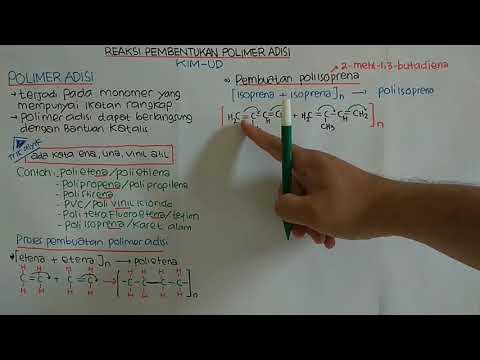 REAKSI PEMBENTUKAN POLIMER ADISI
KIM-UD
POLIMER ADISI
→ terjadi pada monomer yang
mempunyai ikatan rangkap
→ Polimer adisi dapat berlangsung
dengan Bantuan Katalis
ada kata ena, una, vinil atil
Contoh: - Poli etena/polietilena
- Polipropena/polipropilena
- Polistirena
- PVC/Poli vinil klorida
- Poli tetra Fluoro etena/teflon
- Poli Isoprena/karet alam
Proses pembuatan polimer adisi
[etena + etena]n → polietena
H H H H H H H H
C = C + C = C → [-C-C-C-C-]n
H H H H H H H H
2-metil-1,3-butadiena
Pembuatan poliisoprena
[isoprena + isoprena]n → poliisoprena
CH3